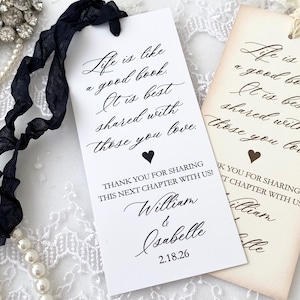 Life is like
a good book.
It is best
shared with
those you love.
THANK YOU FOR SHARING
THIS NEXT CHAPTER WITH US!
William
&
Isabelle
2.18.26
Life is
a good
It is
shared
those you
THANK YOU FOR
NEXT CHAPTER
William
&
Isabelle
2.18.26